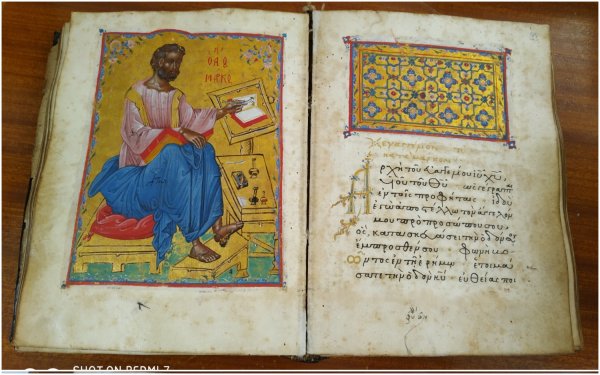 ΜΑΡΚΟ
κατὰ μάρκον
ἀρχὴ τοῦ εὐαγγελίου ἰῦ χῦ
υἱοῦ τοῦ θῦ ὡς γέγραπτ
ἐν τοῖς προφήταις ἰδοὺ
ἐγὼ ἀποστέλλω τὸν ἄγγελον
μου πρὸ προσώπου σου,
ὃς κατασκευάσει τὴν ὁδόν σου
ἔμπροσθέν σου · φωνὴ βο
ῶντος ἐν τῇ ἐρήμω ἑτοιμά
σατε τὴν ὁδὸν κῦ · εὐθείας ποι
SHOT ON REDMI 7